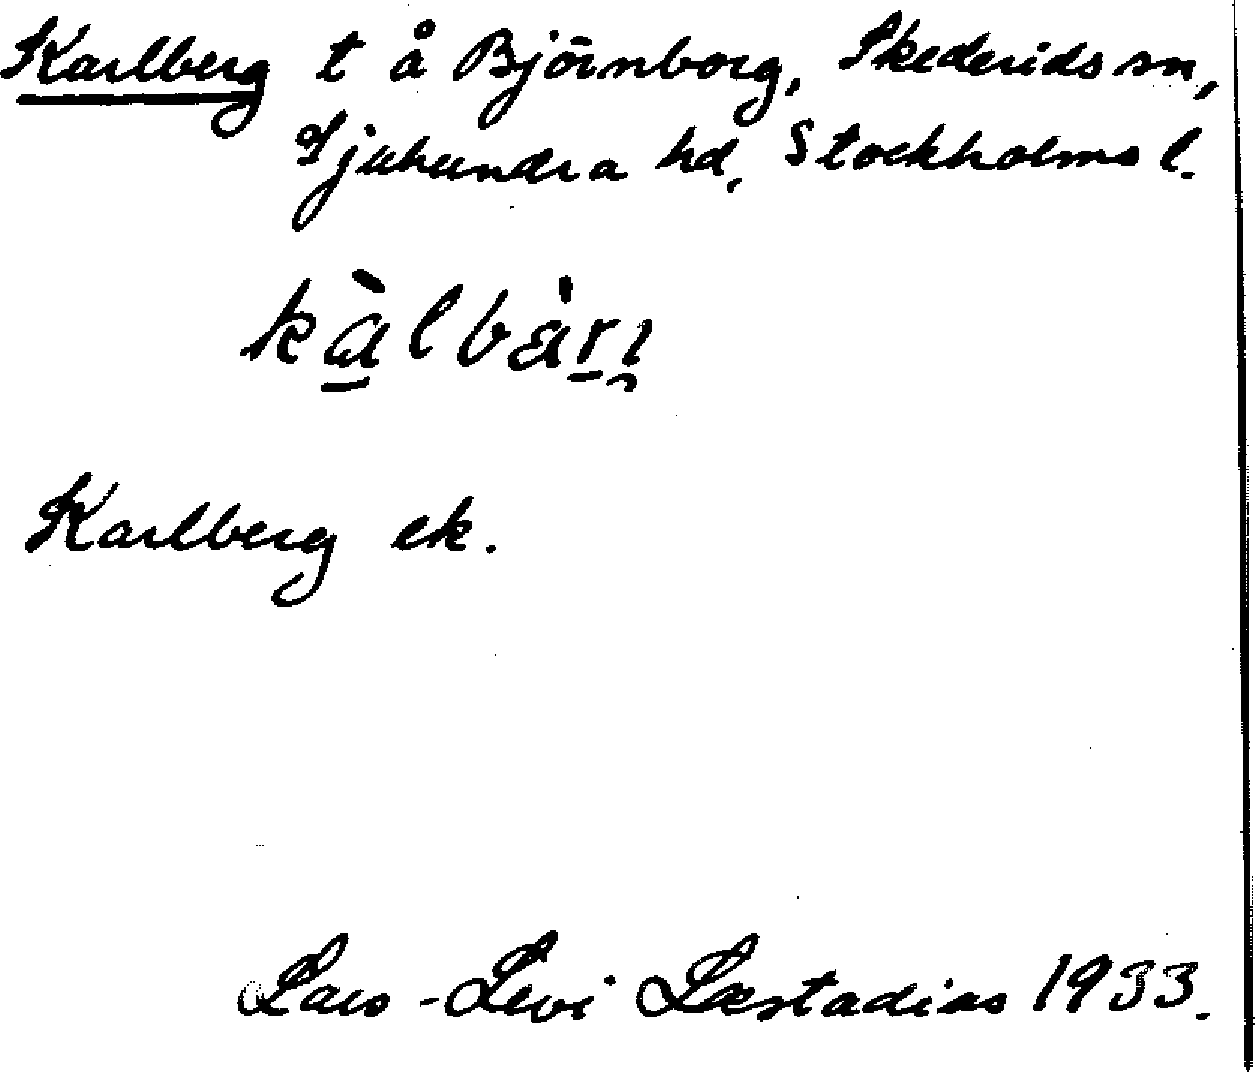 Karlberg t å Björnborg, Skederids sn,
Sjuhundra hd, Stockholms l.
kàlbàrı
Karlberg ek.
Lars-Levi Læstadius 1933.